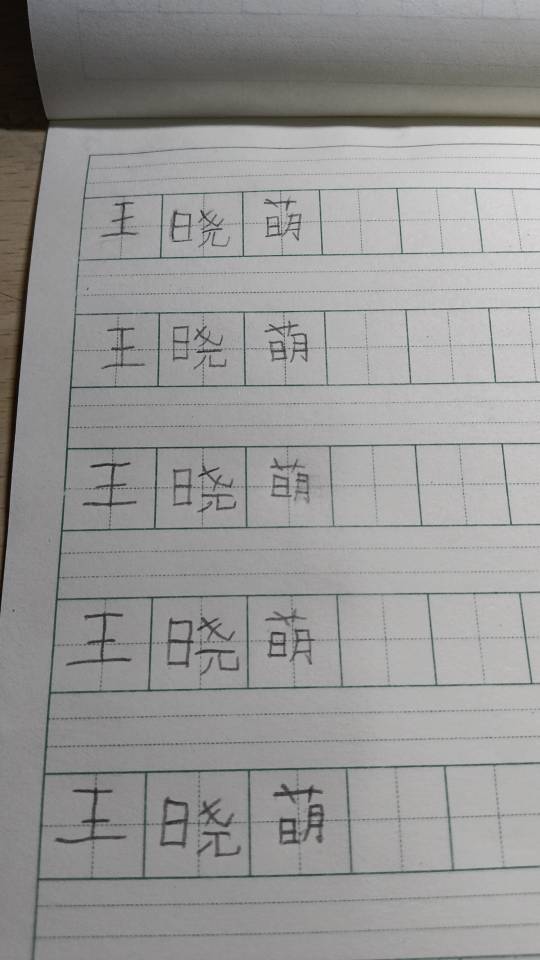 王晓萌
王晓萌
王晓萌
王晓萌
王晓萌